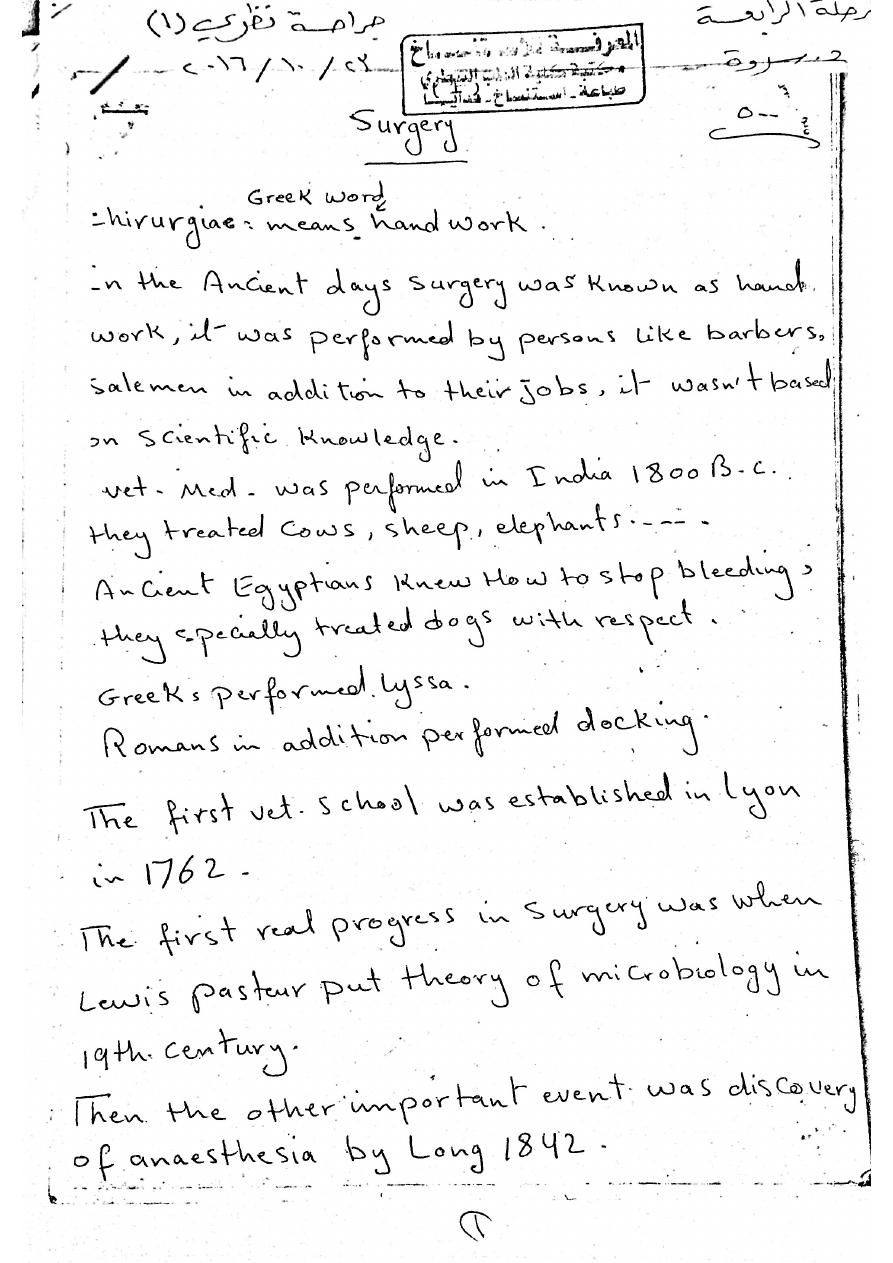 جراحة نظري (١)
مرحلة الرابعة
٢٠١٦/١٠/٢٣
المعرفة للاستنساخ
مكتبة كلية الطب البيطري
طباعة - استنساخ -
٥٠٠
Surgery
Greek word
chirurgiae : means hand work .
in the Ancient days surgery was known as hand
work, it was performed by persons like barbers,
salemen in addition to their jobs, it wasn't based
on scientific knowledge.
vet. Med. was performed in India 1800 B.C.
they treated cows, sheep, elephants.----.
Ancient Egyptians knew How to stop bleeding,
they specially treated dogs with respect .
Greeks performed lyssa.
Romans in addition performed docking.
The first vet. school was established in Lyon
in 1762 .
The first real progress in surgery was when
Lewis pasteur put theory of microbiology in
19th. century.
Then the other important event was discovery
of anaesthesia by Long 1842 .
1